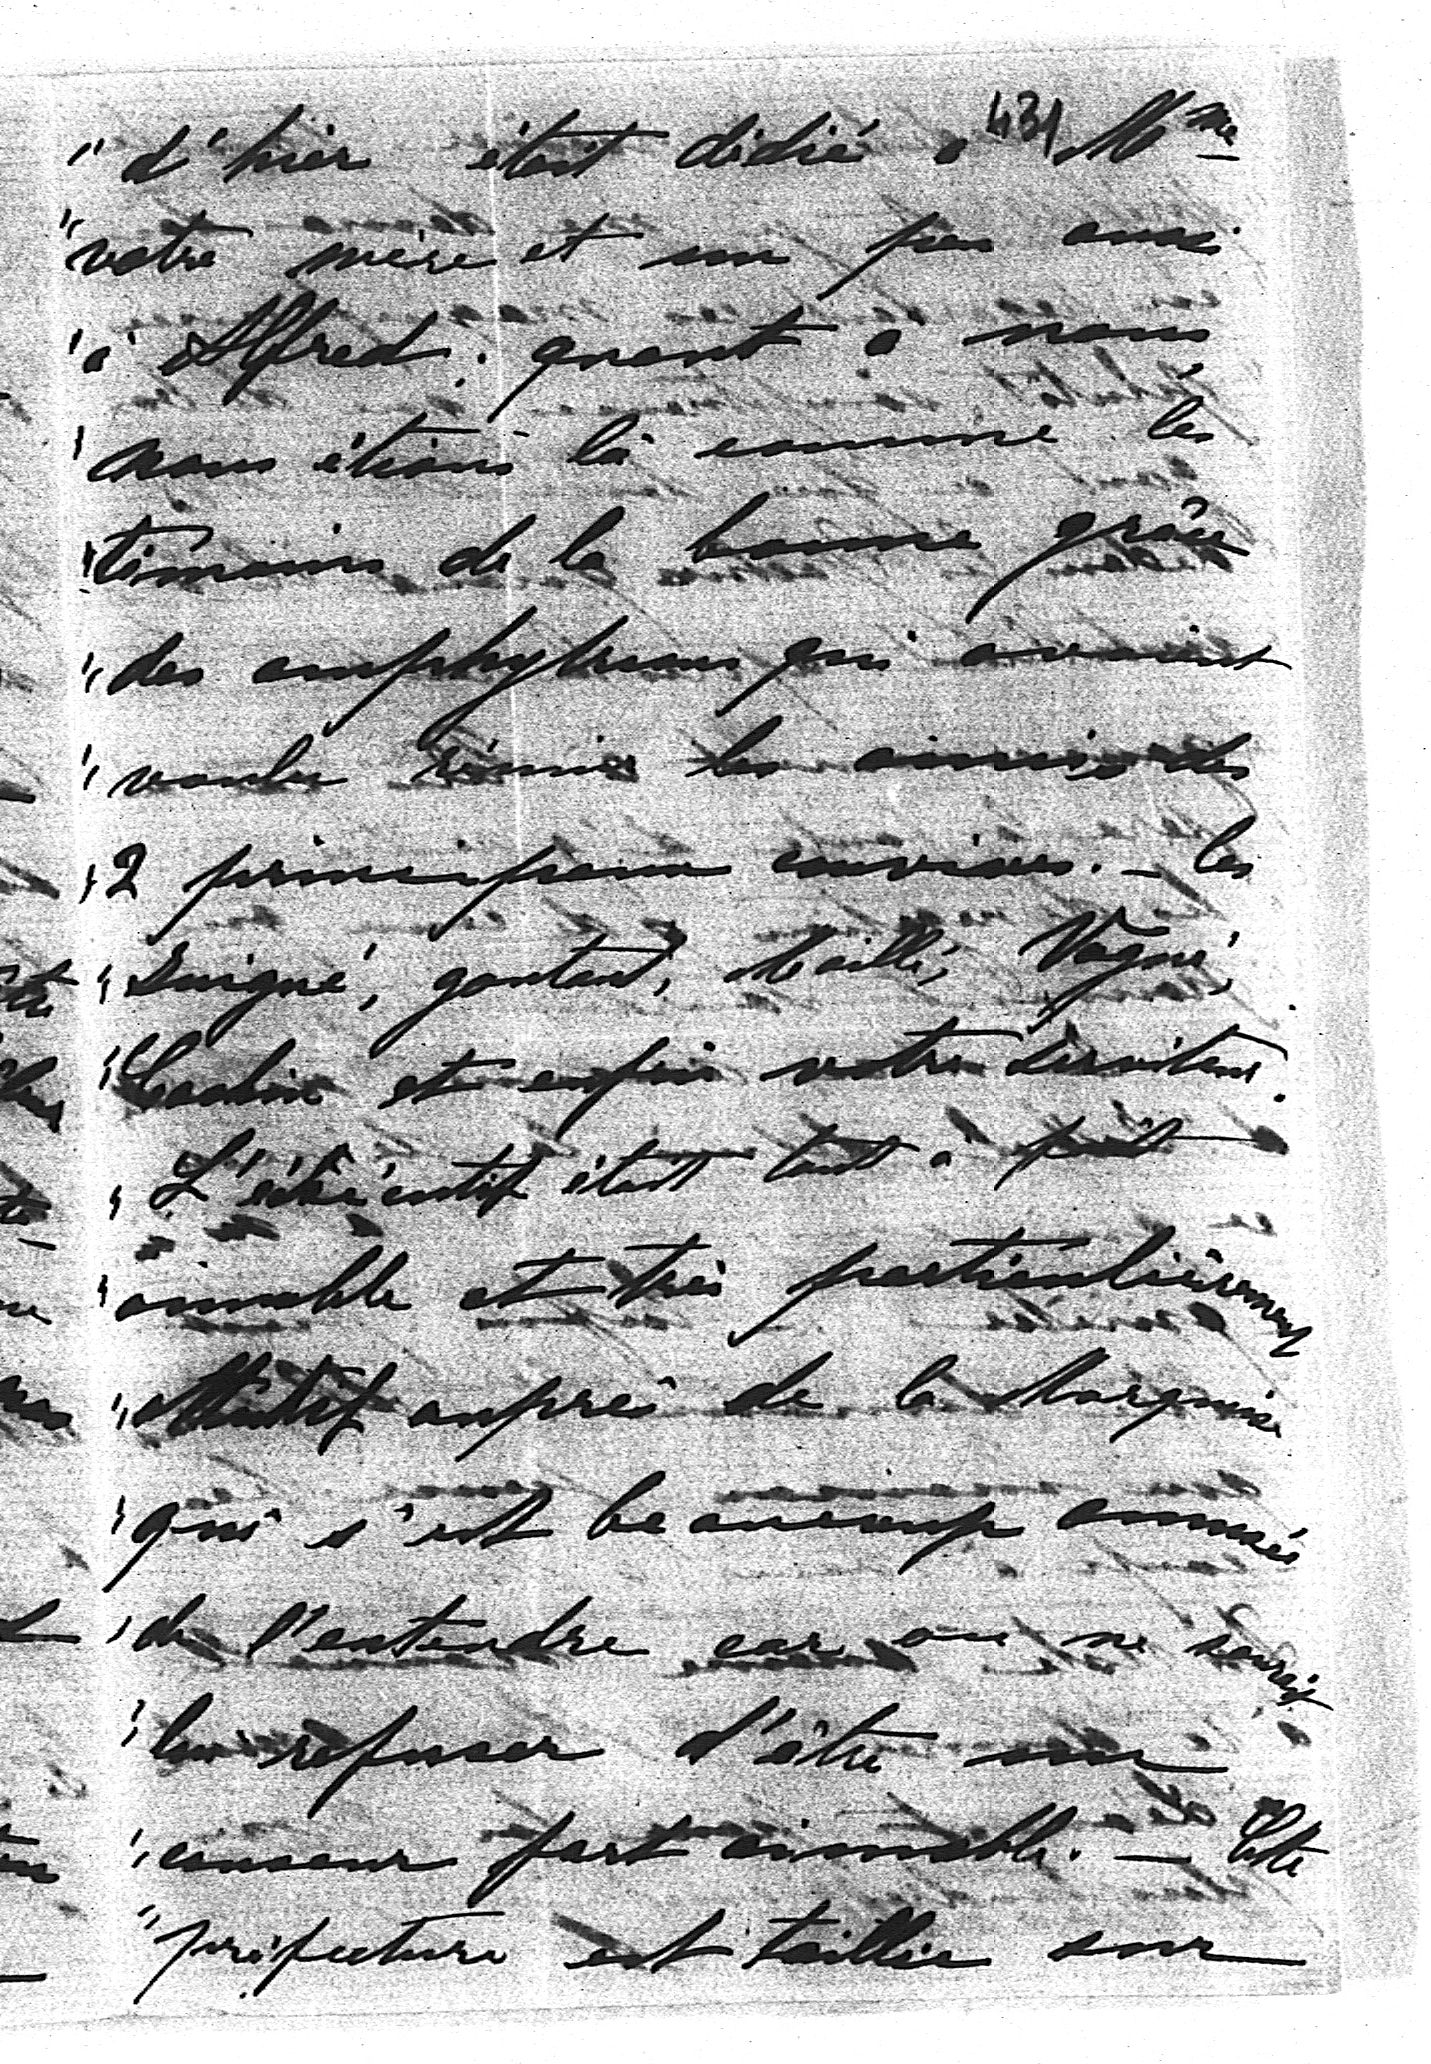 431
" d'hier était dédié à Mme
" votre mère et un peu aussi
" à Alfred ; quant à nous
" nous étions là comme les
" témoins de la bonne grâce
" des amphytrions qui avaient
" voulu réunir les amis des
" 2 principaux convives. — les
" Suigné, gontaut, Maillé, Vogué,
" Cochin et enfin votre serviteur.
" L'exécutif était tout à fait
" aimable et très particulièrement
" attentif auprès de la Marquise
" qui s'est beaucoup amusée
" de l'entendre car on ne saurait
" lui refuser d'être un
" causeur fort aimable. — Cette
" préfecture est taillée sur